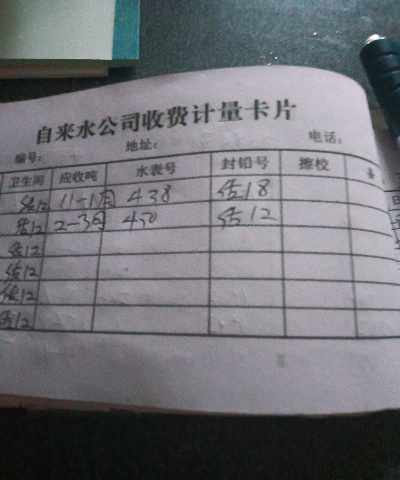 自来水公司收费计量卡片
编号: 地址: 电话:
卫生间 应收吨 水表号 封铅号 擦校 备
结12 11-1月 438 结18
结12 2-3月 450 结12
结12
结12
结12
结12